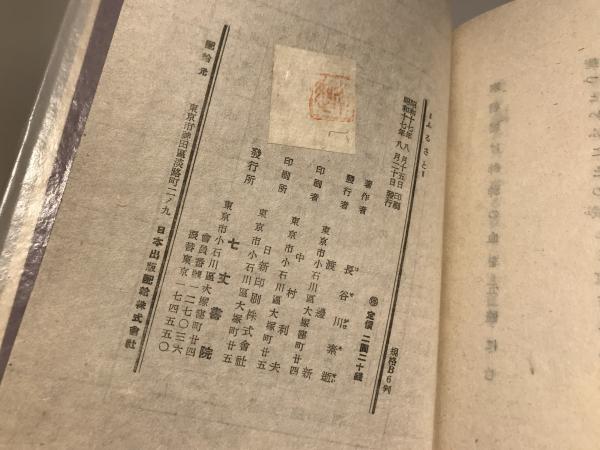 =ふるさと=
昭和十七年八月十五日 印刷
昭和十七年八月二十日 發行
規格B6列
㊞ 定價 二圓二十錢
著作者 長谷川素逝
發行者 渡邊新
東京市小石川區大塚窪町廿四
印刷者 中村利夫
東京市小石川區大塚町廿五
印刷所 日新印刷株式會社
東京市小石川區大塚窪町廿四
發行所 七丈書院
會員番號一二七〇三六
振替東京一七四五五〇
配給元 東京市神田區淡路町二ノ九 日本出版配給株式會社